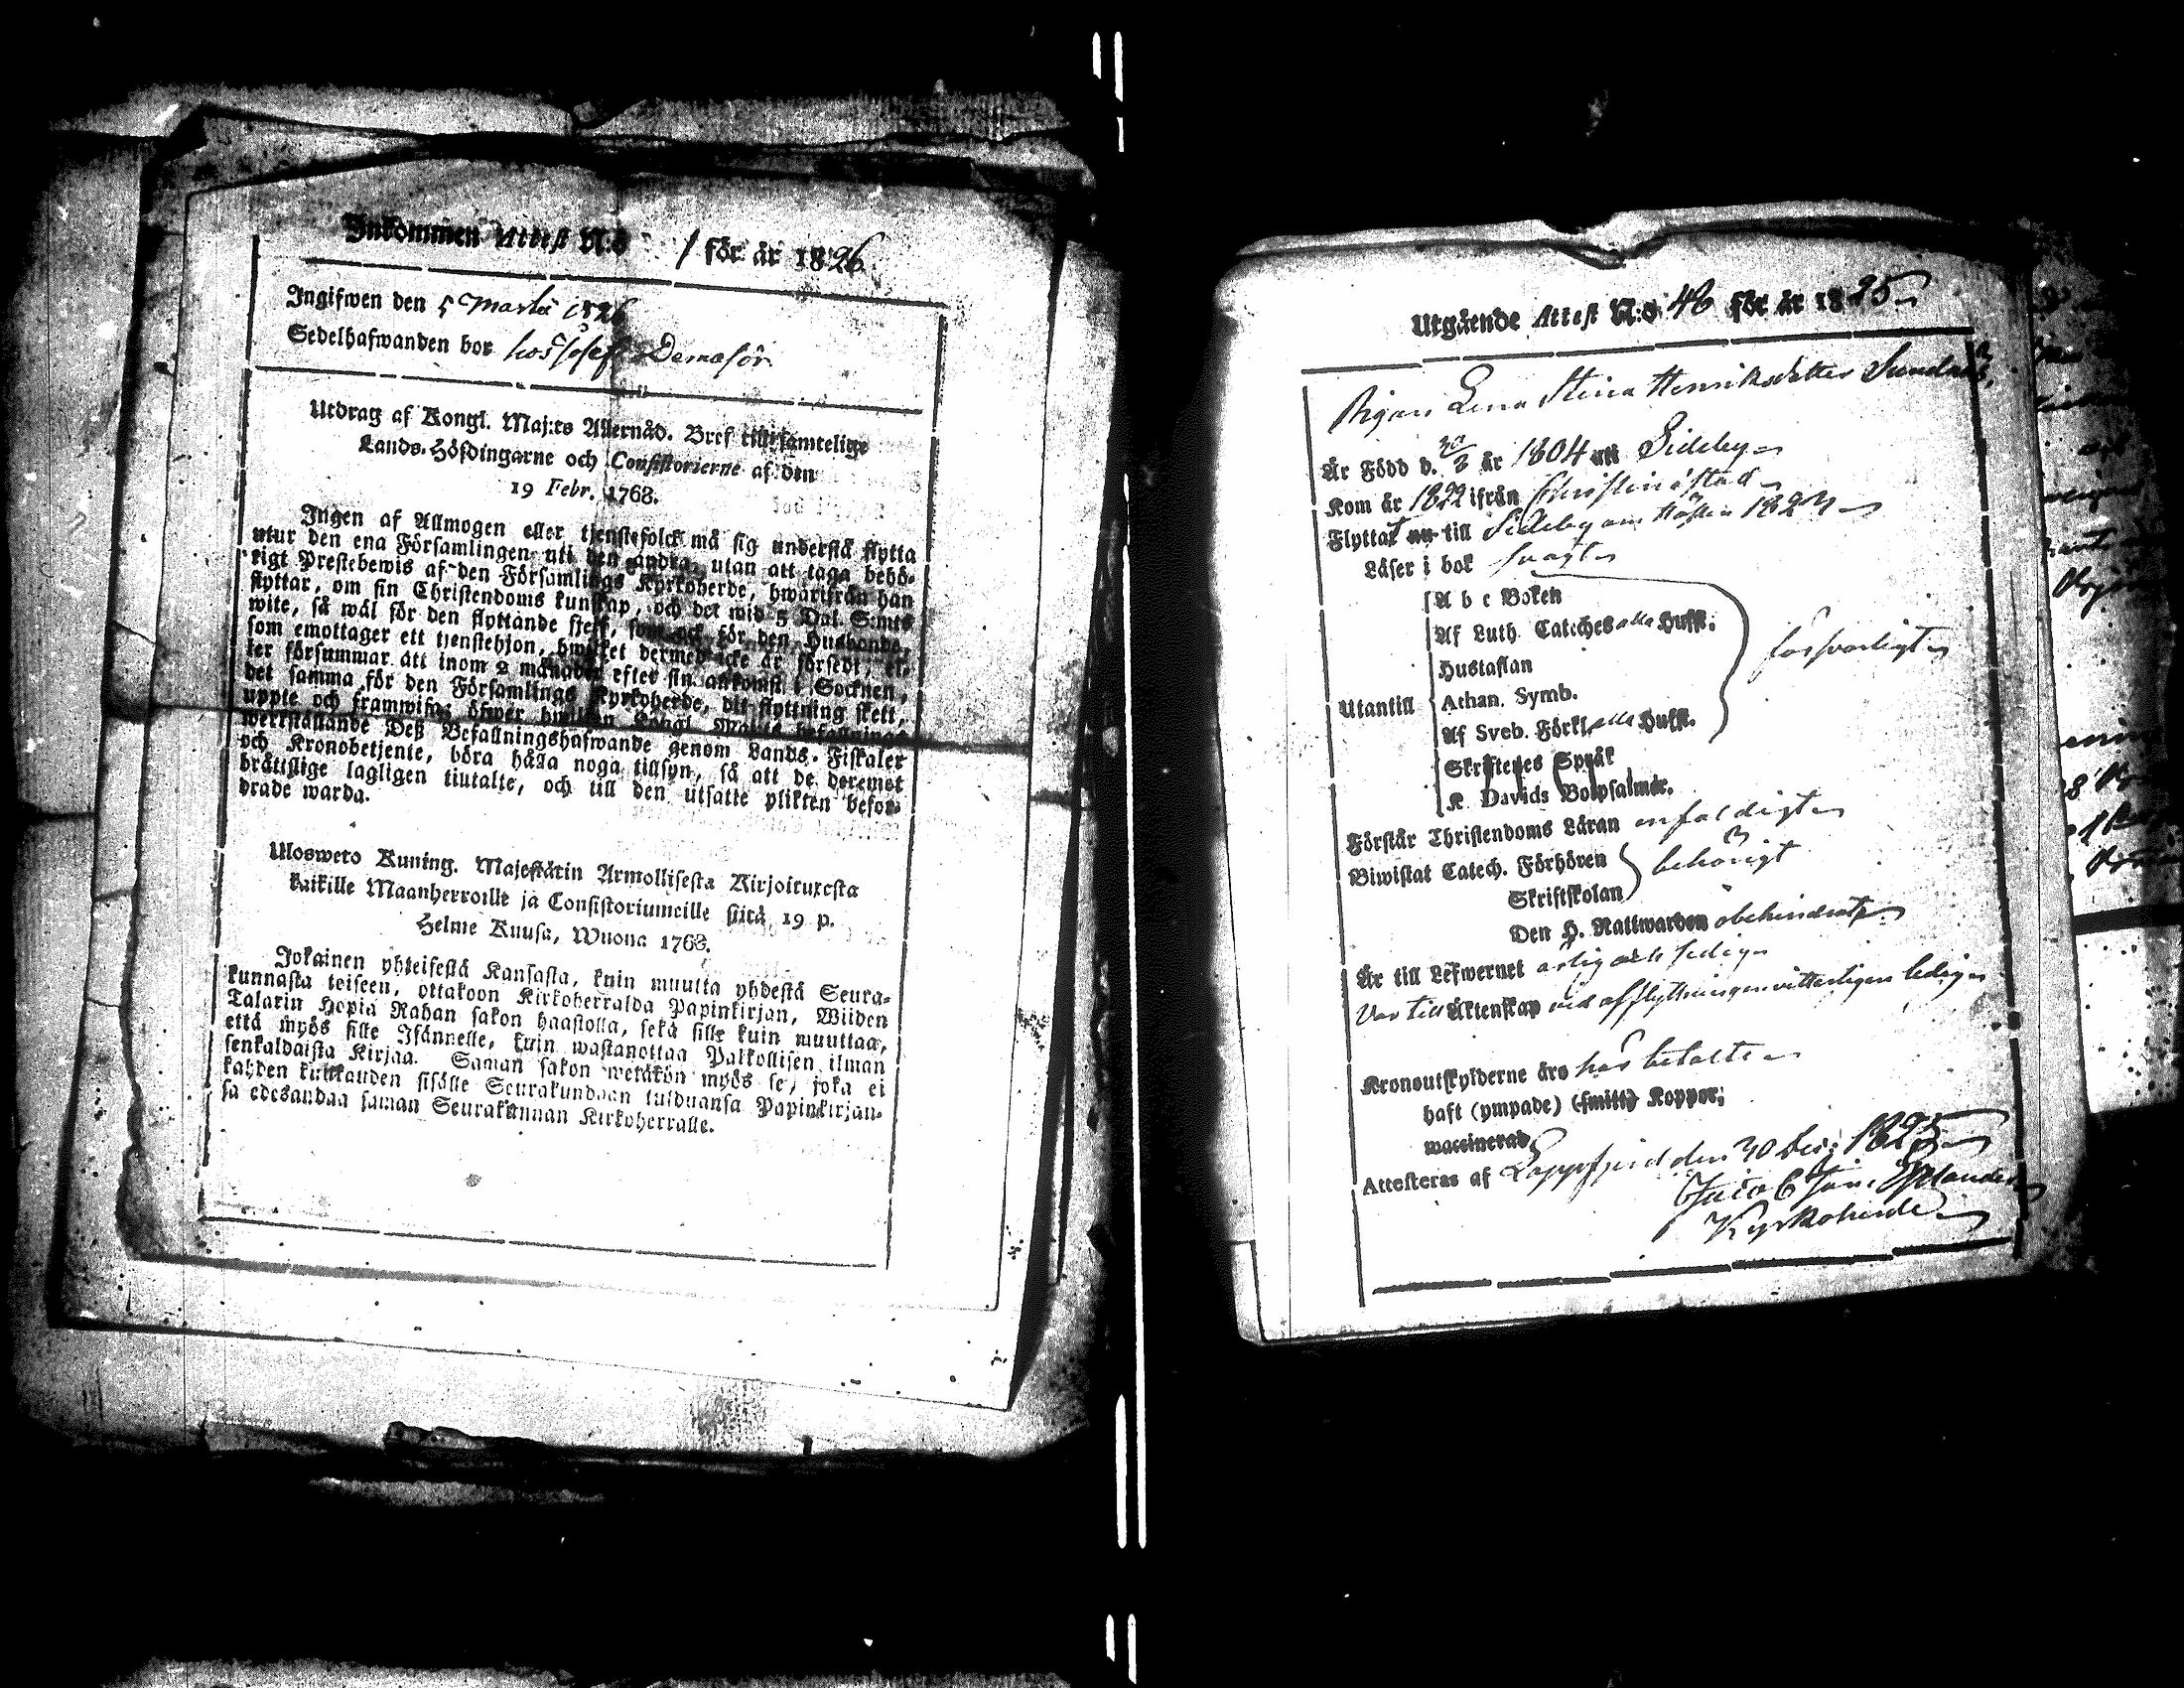 Inkommen Attest N:o 1 för år 1826
Ingifwen den 5 Martii 1826
Sedelhafwanden bor hos Josef
Utdrag af Kongl. Maj:ts Allernåd. Bref till samtelige
Lands-Höfdingarne och Consistorierne af den
19 Febr. 1768.
Ingen af Allmogen eller tjenstefolck må sig understå flytta
utur den ena Församlingen uti den andra, utan att taga behö-
rigt Prestebewis af den Församlings Kyrkoherde, hwarifrån han
flyttar, om sin Christendoms kunskap, och det wid 5 Dal. S:mts
wite, så wäl för den flyttande sjelf, som ock för den Husbonde,
som emottager ett tjenstehjon, hwilket dermed icke är försedt, el-
ler försummar att inom 2 månader efter sin ankomst i Socknen,
det samma för den Församlings Kyrkoherde, dit flyttning skett,
uppte och framwisa; öfwer hwilken Kongl. Maj:ts befallnings
werkställande Deß Befallningshafwande genom Lands-Fiskaler
och Kronobetjente, böra hålla noga tillsyn, så att de deremot
bråttslige lagligen tiutalte, och till den utsatte plikten befor-
drade warda.
Ulosweto Kuning. Majestätin Armollisesta Kirjoituxesta
kaikille Maanherroille ja Consistoriumeille siitä 19 p.
Helme Kuusa, Wuona 1768.
Jokainen yhteisestä Kansasta, kuin muutta yhdestä Seura-
kunnasta toiseen, ottakoon Kirkoherralda Papinkirjan, Wiiden
Talarin Hopia Rahan sakon haastolla, sekä sille kuin muuttaa,
että myös sille Isännelle, kuin wastanottaa Palkollisen ilman
senkaldaista Kirjaa. Saman sakon wetäkön myös se, joka ei
kahden kuukauden sisälle Seurakundaan tulduansa Papinkirjan-
sa edesandaa saman Seurakunnan Kirkoherralle.
Utgående Attest N:o 46 för år 1825
Pigan Lena Stina Henriksdotter
Är Född d. 30/8 år 1804 uti Sideby
Kom år 1822 ifrån Christinestad
Flyttat nu till Sideby om Hösten 1824
Läser i bok svagt
A b c Boken
Af Luth. Cateches alla Hufst.
Hustaflan
försvarligt
Utantill Athan. Symb.
Af Sveb. Förkl. alla Hufst.
Skriftenes Språk
K. Davids Botpsalmer.
Förstår Christendoms Läran enfaldigt
Biwistat Catech. Förhören behörigt
Skriftskolan
Den H. Nattwarden obehindrat
Är till Lefwernet ärlig och sedig
Var till Äktenskap vid afflyttningen vitterligen ledig
Kronoutskylderne äro här betalte
haft (ympade) (smitt) Koppor;
waccinerad
Attesteras af Lappfjerd den 30 Dec: 1825
Kyrkoherde